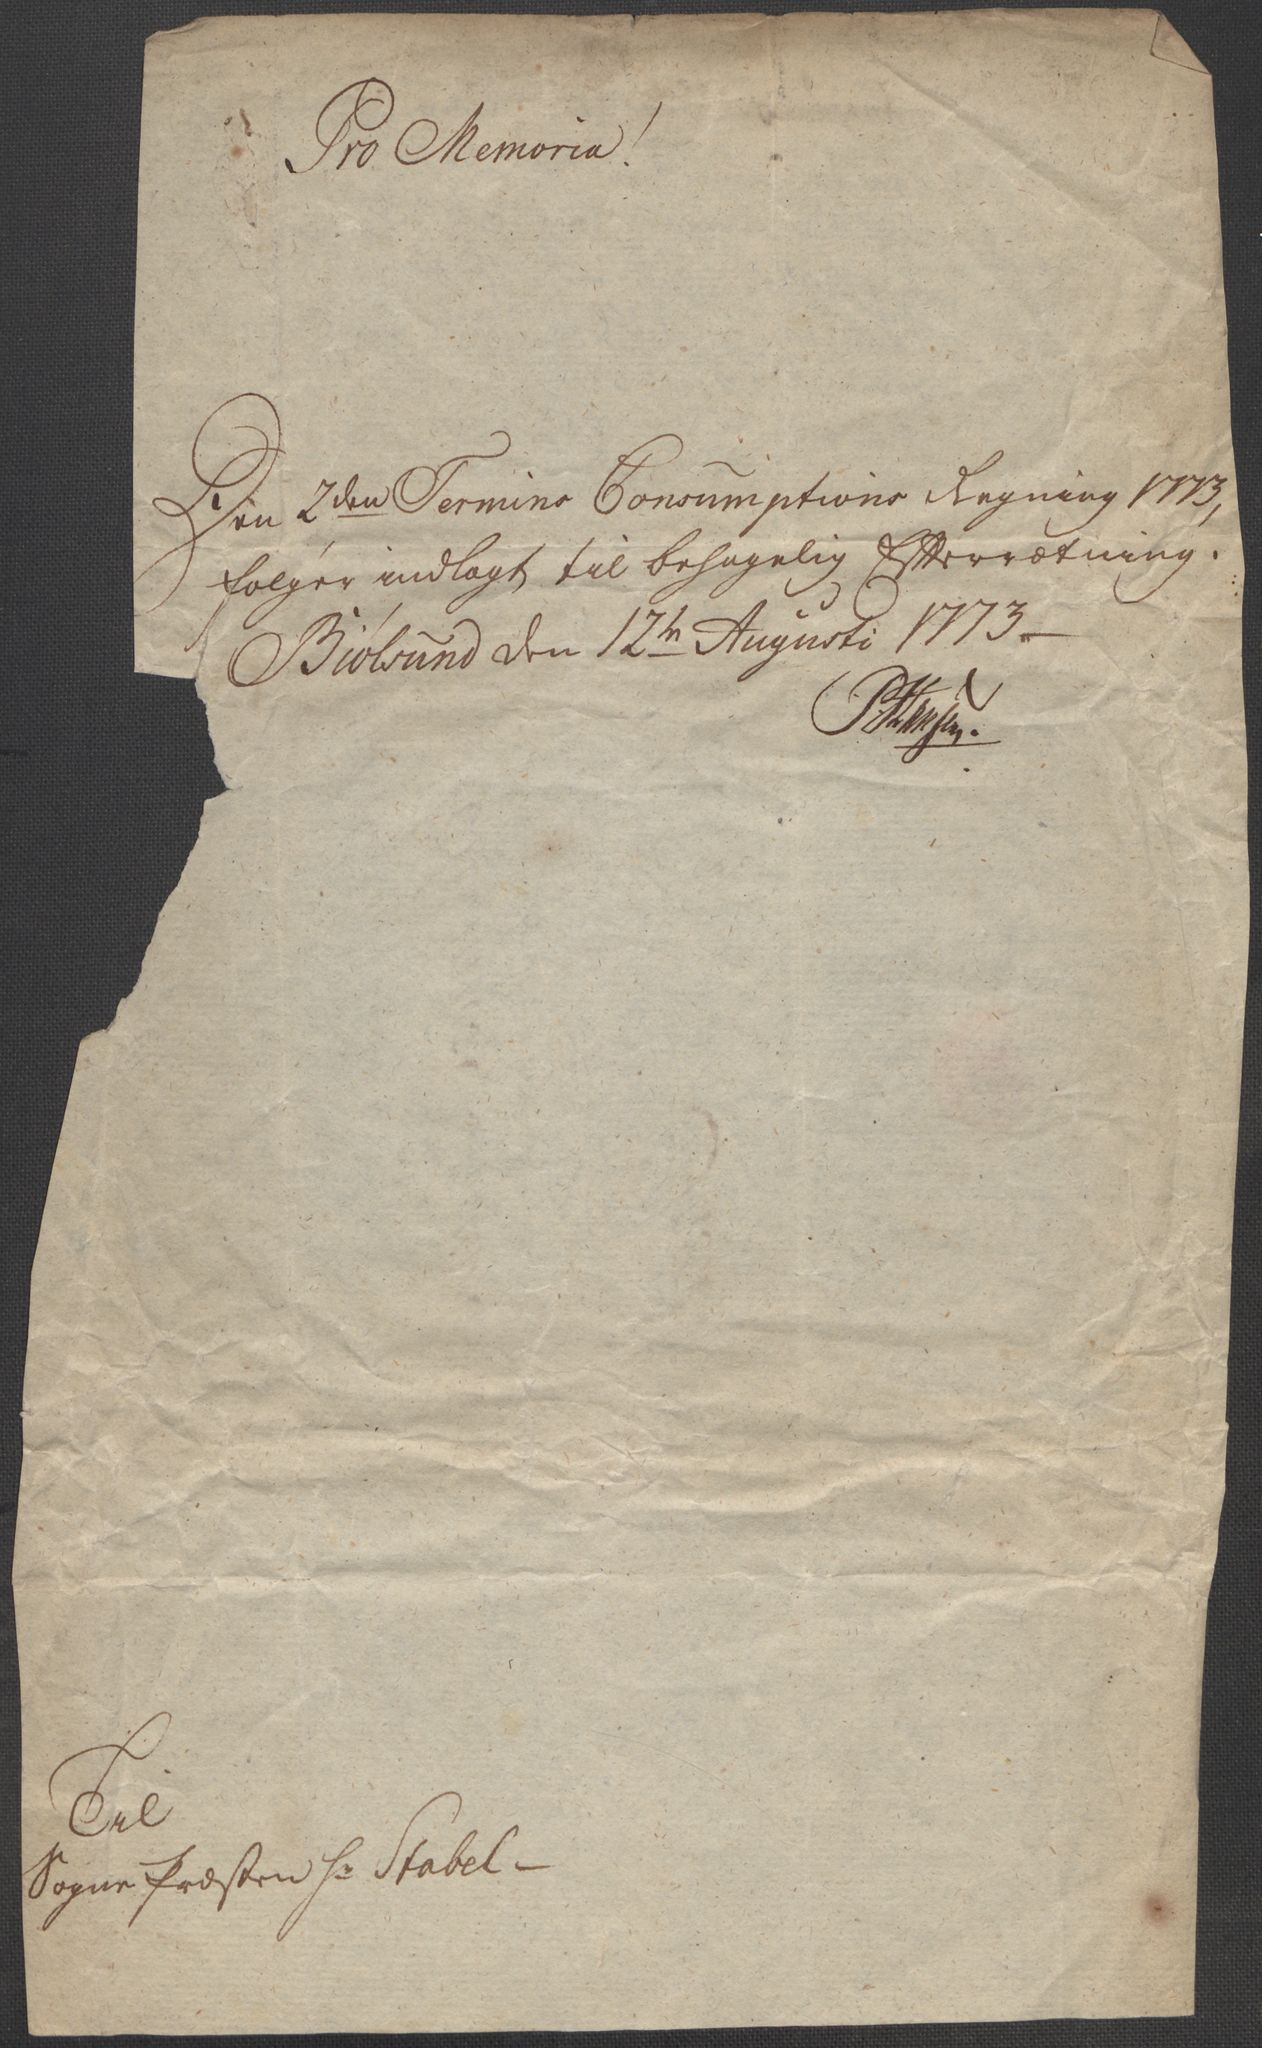 Pro Memoria!
Den 2den Termins Consumptions Regning 1773,
følger indlagt til behagelig Efterrætning.
Biølsund den 12te Augusti 1773
P. Hansen.
Til
Sogne Præsten Hr Stabel